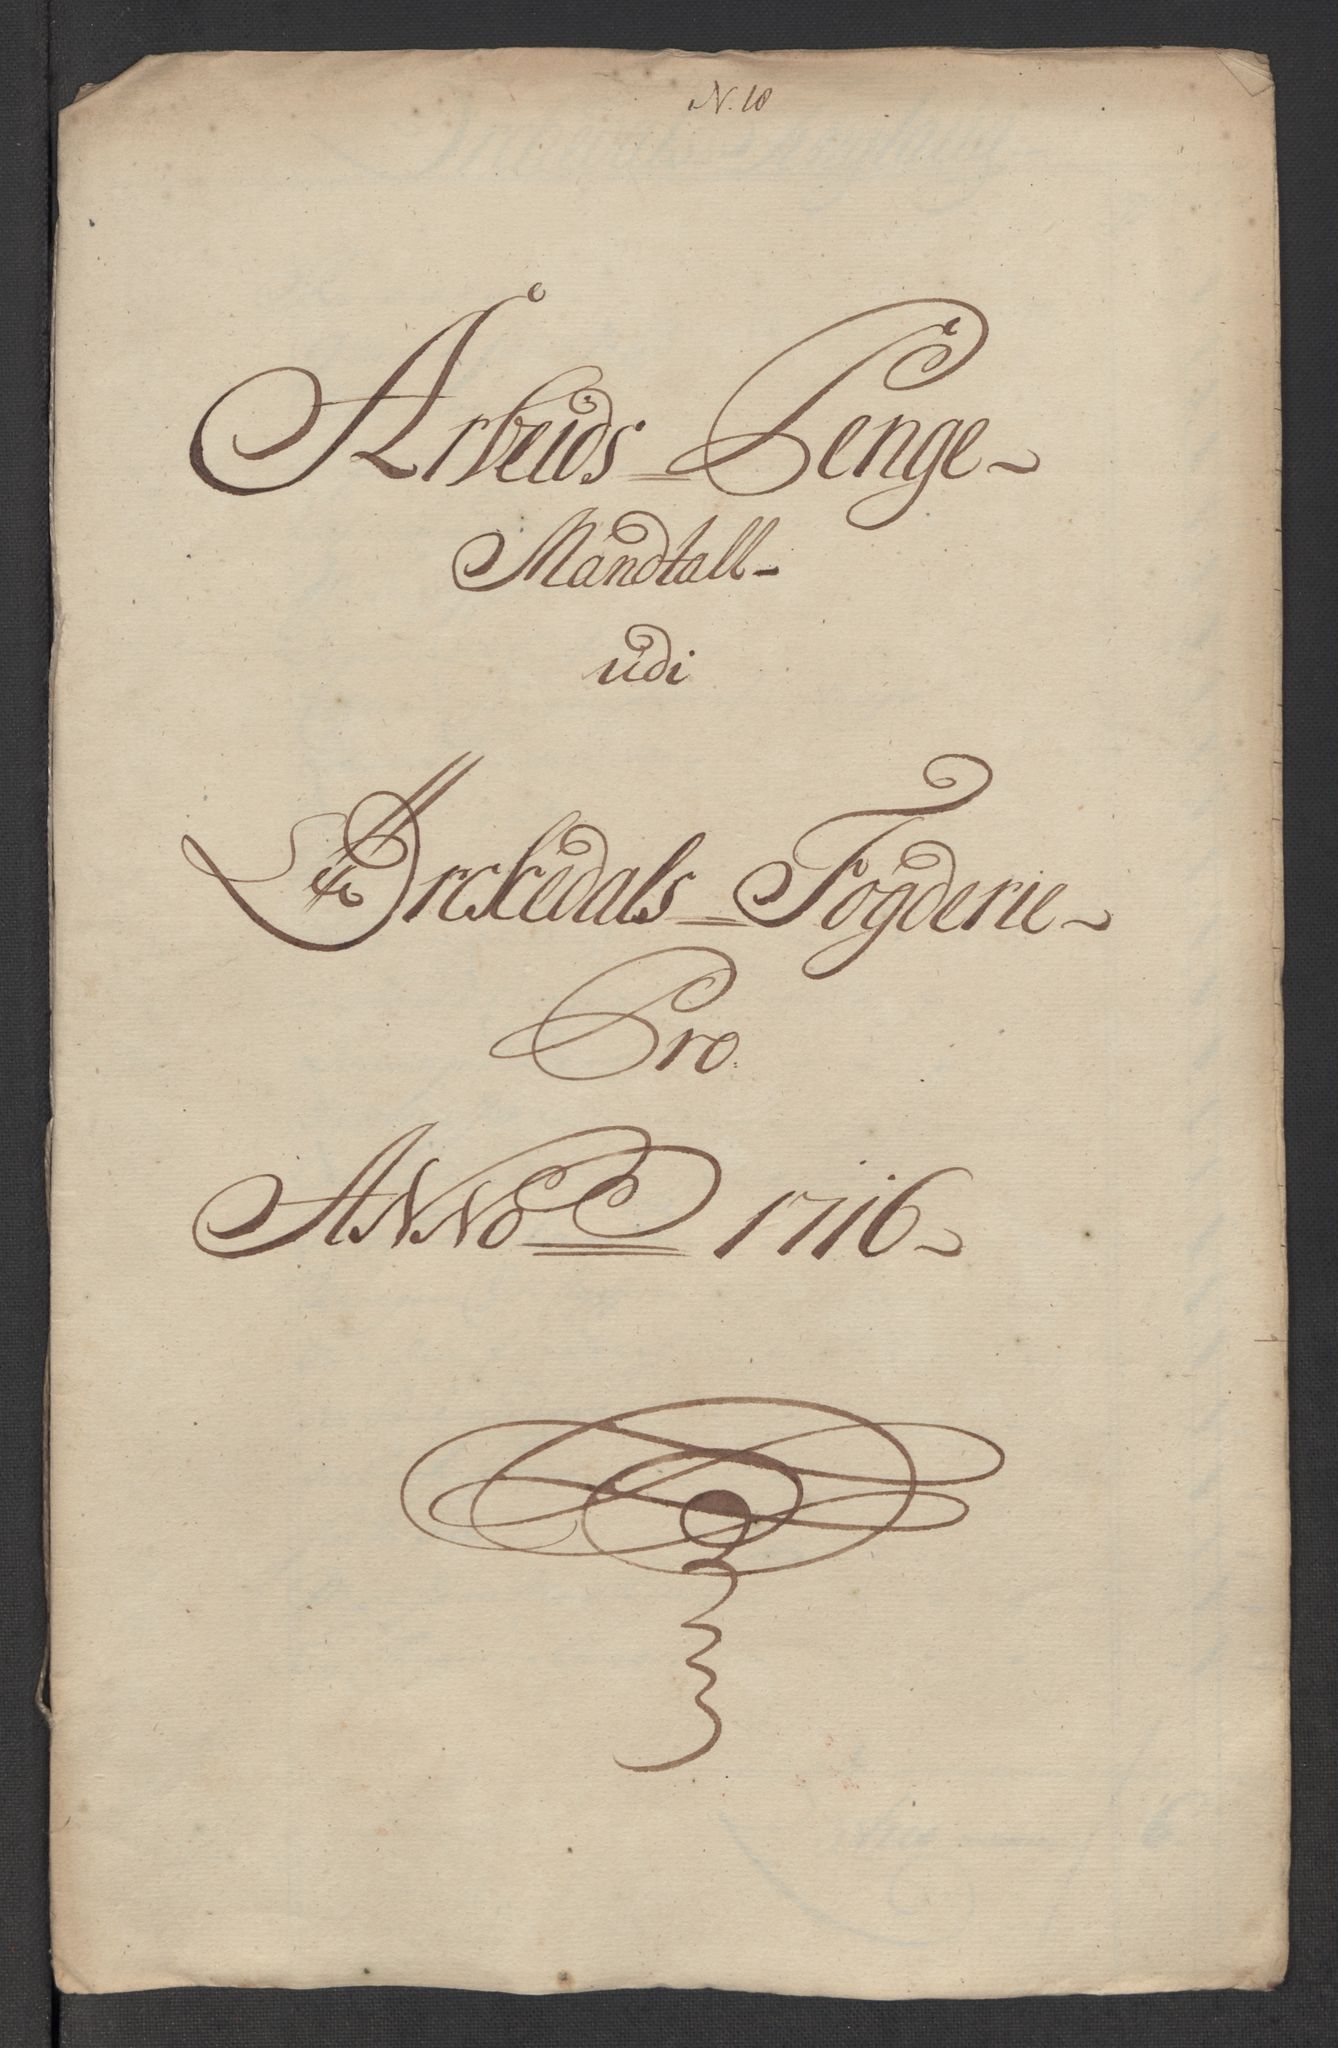 N. 10
Arbeids Penge
Mandtall
udi
Orckedals Fogderie
Pro
ANNO 1716